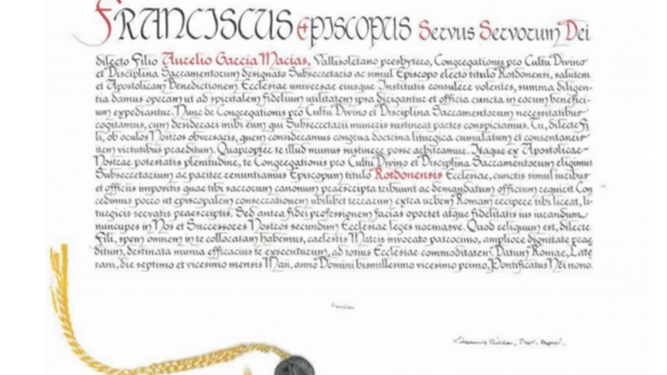 FRANCISCUS EPISCOPUS Servus Servorum Dei
dilecto Filio Aurelio García Macías, Vallisoletano presbytero, Congregationis pro Cultu Divino
et Disciplina Sacramentorum designato Subsecretario ac simul Episcopo electo titulo Rotdonensi, salutem
et Apostolicam Benedictionem. Ecclesiae universae eiusque Institutis consulere volentes, summa diligen
tia damus operam ut ad spiritalem fidelium utilitatem ipsa dirigantur et officia cuncta in eorum benefici-
um expediantur. Nunc de Congregationis pro Cultu Divino et Disciplina Sacramentorum necessitatibus
cogitamus, cum desideraci mihi eum qui Subsecretarii muneris sustineat partes conspiciamus. Tu, dilecte Fi
li, ob oculos Nostros observaris, quem consideramus congrua doctrina liturgica cumulatum et consentaneis
item virtutibus praeditum. Quapropter te illud munus sustinere posse arbitramur. Itaque ex Apostolicae
Nostrae potestatis plenitudine, te Congregationis pro Cultu Divino et Disciplina Sacramentorum eligimus
Subsecretarium ac pariter renuntiamus Episcopum titulo Rotdonensis Ecclesiae, cunctis simul iuribus
et officiis impositis quae tibi sacrorum canonum praescripta tribuunt ac demandatum officium requirit. Con
cedimus porro ut episcopalem consecrationem ubilibet terrarum extra urbem Romam recipere tibi liceat, li-
turgicis servatis praescriptis. Sed antea fidei professionem facias oportet atque fidelitatis ius iurandum
nuncupes in Nos et Successores Nostros secundum Ecclesiae leges normasve. Quod reliquum est, dilecte
Fili, spem omnem in te collocatam habemus, caelestis Matris invocato patrocinio, ampliore dignitate prae
ditum, destinata munia efficacius te exsecuturum, ad totius Ecclesiae commoditatem. Datum Romae, Late
rani, die septimo et vicesimo mensis Maii, anno Domini bismillesimo vicesimo primo, Pontificatus Nri nono.